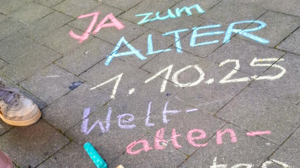 JA zum
ALTER
1.10.25
Welt-
alten-